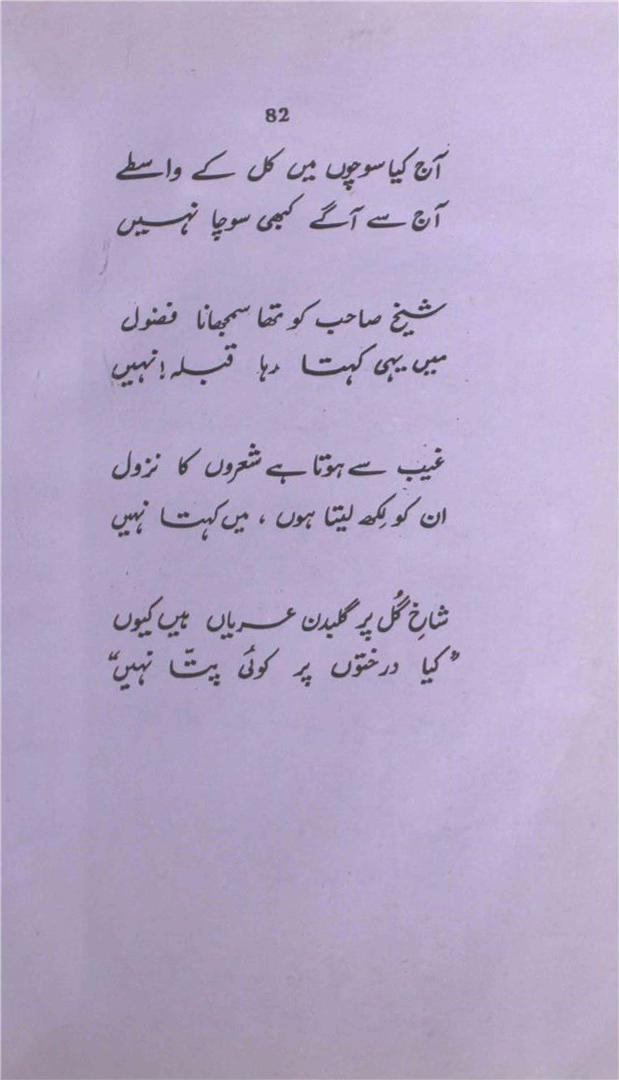 82
آج کیا سوچوں میں کل کے واسطے
آج سے آگے کبھی سوچا نہیں
شیخ صاحب کو تھا سمجھانا فضول
میں یہی کہتا رہا قبلہ! نہیں
غیب سے ہوتا ہے شعروں کا نزول
ان کو لکھ لیتا ہوں ، میں کہتا نہیں
شاخِ گُل پر گلبدن عریاں ہیں کیوں
"کیا درختوں پر کوئی پتّا نہیں"